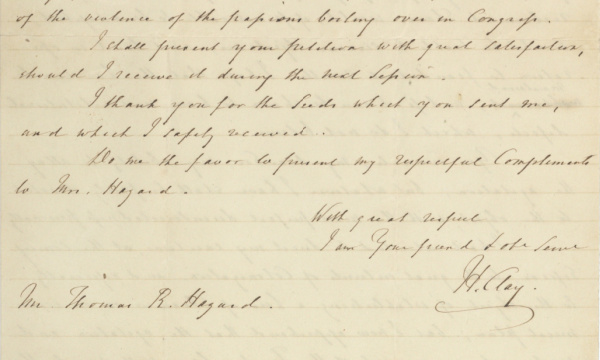 of the violence of the passions boiling over in Congress.
I shall present your petition with great satisfaction,
should I receive it during the next Session.
I thank you for the Seeds which you sent me,
and which I safely received.
Do me the favor to present my respectful Compliments
to Mrs. Hazard.
With great respect
I am Your friend & obt Servt
H. Clay.
Mr. Thomas R. Hazard.